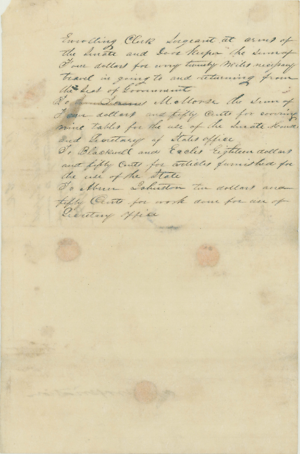 Enrolling Clerk Sergeant at arms of
the Senate and Door Keeper the Sum of
Four dollars for every twenty Miles necessary
travel in going to and returning from
the Seat of Government
To McMoore the Sum of
Four dollars and fifty Cents for covering
nine tables for the use of the Senate
and Secretary of States office
To Blackwell and Eccles Eighteen dollars
and fifty Cents for articles furnished for
the use of the State
To Abner Johnston Ten dollars and
fifty Cents for work done for use of
Secretarys office